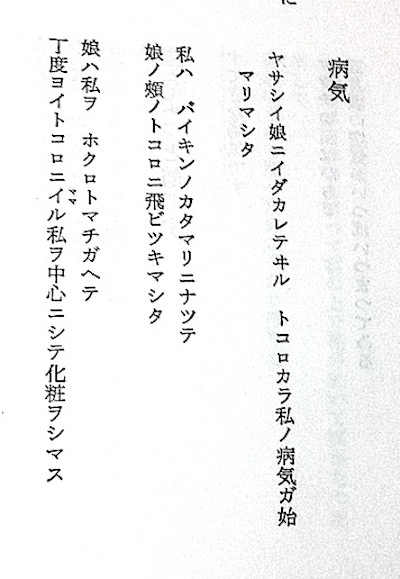 に
病気
ヤサシイ娘ニイダカレテヰル　トコロカラ私ノ病気ガ始
マリマシタ
私ハ　バイキンノカタマリニナツテ
娘ノ頰ノトコロニ飛ビツキマシタ
娘ハ私ヲ　ホクロトマチガヘテ
丁度ヨイトコロニイル私ヲ中心ニシテ化粧ヲシマス
ママ